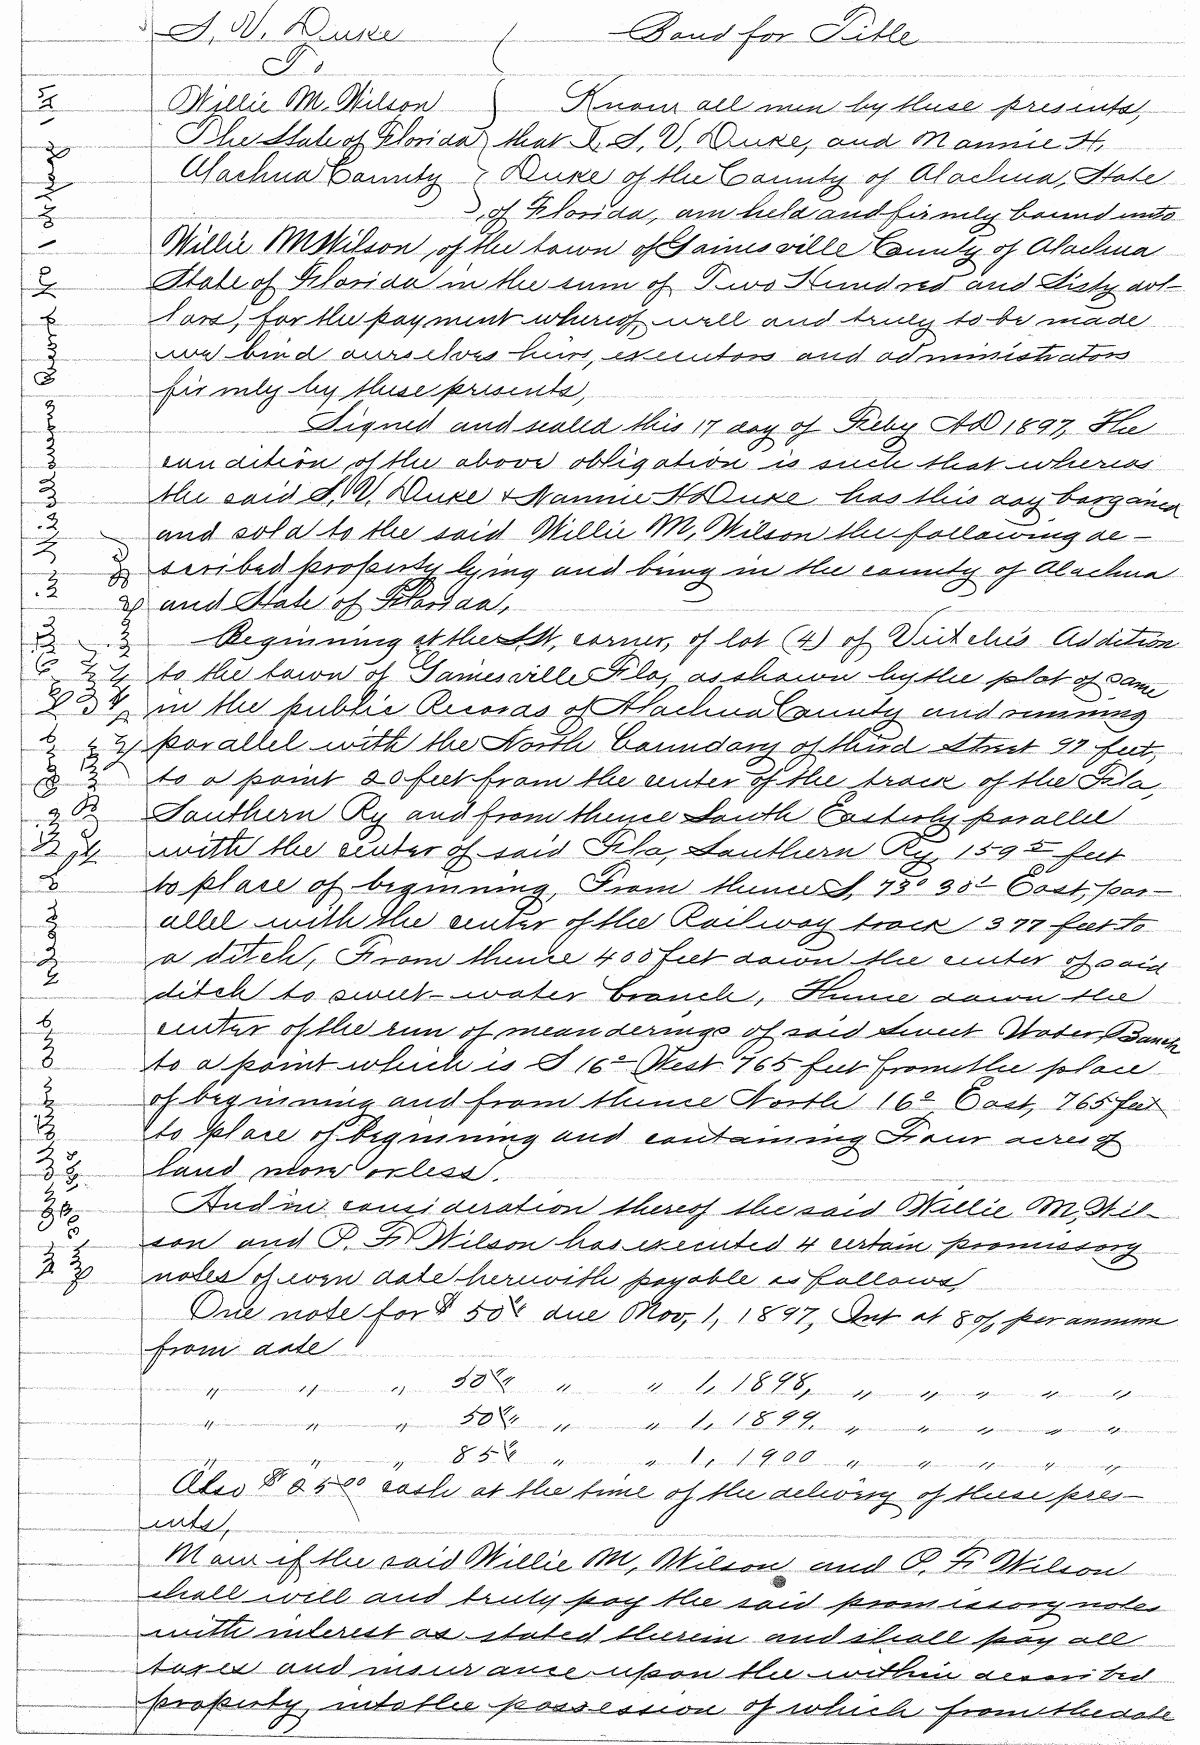 S. V. Duke Bond for Title
To
Willie M. Wilson Know all men by these presents,
The State of Florida that I, S. V. Duke, and Nannie H.
Alachua County Duke of the County of Alachua, State
of Florida, am held and firmly bound unto
Willie M Wilson, of the town of Gainesville County of Alachua
State of Florida in the sum of Two Hundred and Sixty dol-
lars, for the payment whereof, well and truly to be made
we bind ourselves heirs, executors and administrators
firmly by these presents,
Signed and sealed this 17 day of Feby AD 1897, The
condition of the above obligation is such that whereas
the said S. V. Duke & Nannie H Duke has this day bargained
and sold to the said Willie M, Wilson the following de-
scribed property lying and being in the county of Alachua
and State of Florida,
Beginning at the S.W, corner, of lot (4) of Addition
to the town of Gainesville Fla, as shown by the plot of same
in the public Records of Alachua County and running
parallel with the North boundary of third Street 97 feet,
to a point 20 feet from the center of the track of the Fla,
Southern Ry and from thence South Easterly parallel
with the center of said Fla, Southern Ry, 159 5 feet
to place of beginning, From thence S, 73° East, par-
allel with the center of the Railway track 377 feet to
a ditch, From thence 400 feet down the center of said
ditch to sweet-water branch, Thence down the
center of the run of meanderings of said Sweet Water Branch
to a point which is S 16° West 765 feet from the place
of beginning and from thence North 16° East, 765 feet
to place of beginning and containing Four acres of
land more or less.
And in consideration thereof the said Willie M, Wil-
son and P. F. Wilson has executed 4 certain promissory
notes of even date herewith payable as follows,
One note for $50 due Nov, 1, 1897, Int at 8% per annum
from date
" " " 50 " " 1, 1898, " " " " "
" " " 50 " " 1, 1899. " " " " "
" " " 85 " " 1, 1900 " " " " "
Also $25 00 cash at the time of the delivery of these pres-
ents,
Now if the said Willie M, Wilson and P. F. Wilson
shall well and truly pay the said promissory notes
with interest as stated therein and shall pay all
taxes and insurance upon the within described
property, into the possession of which from the date